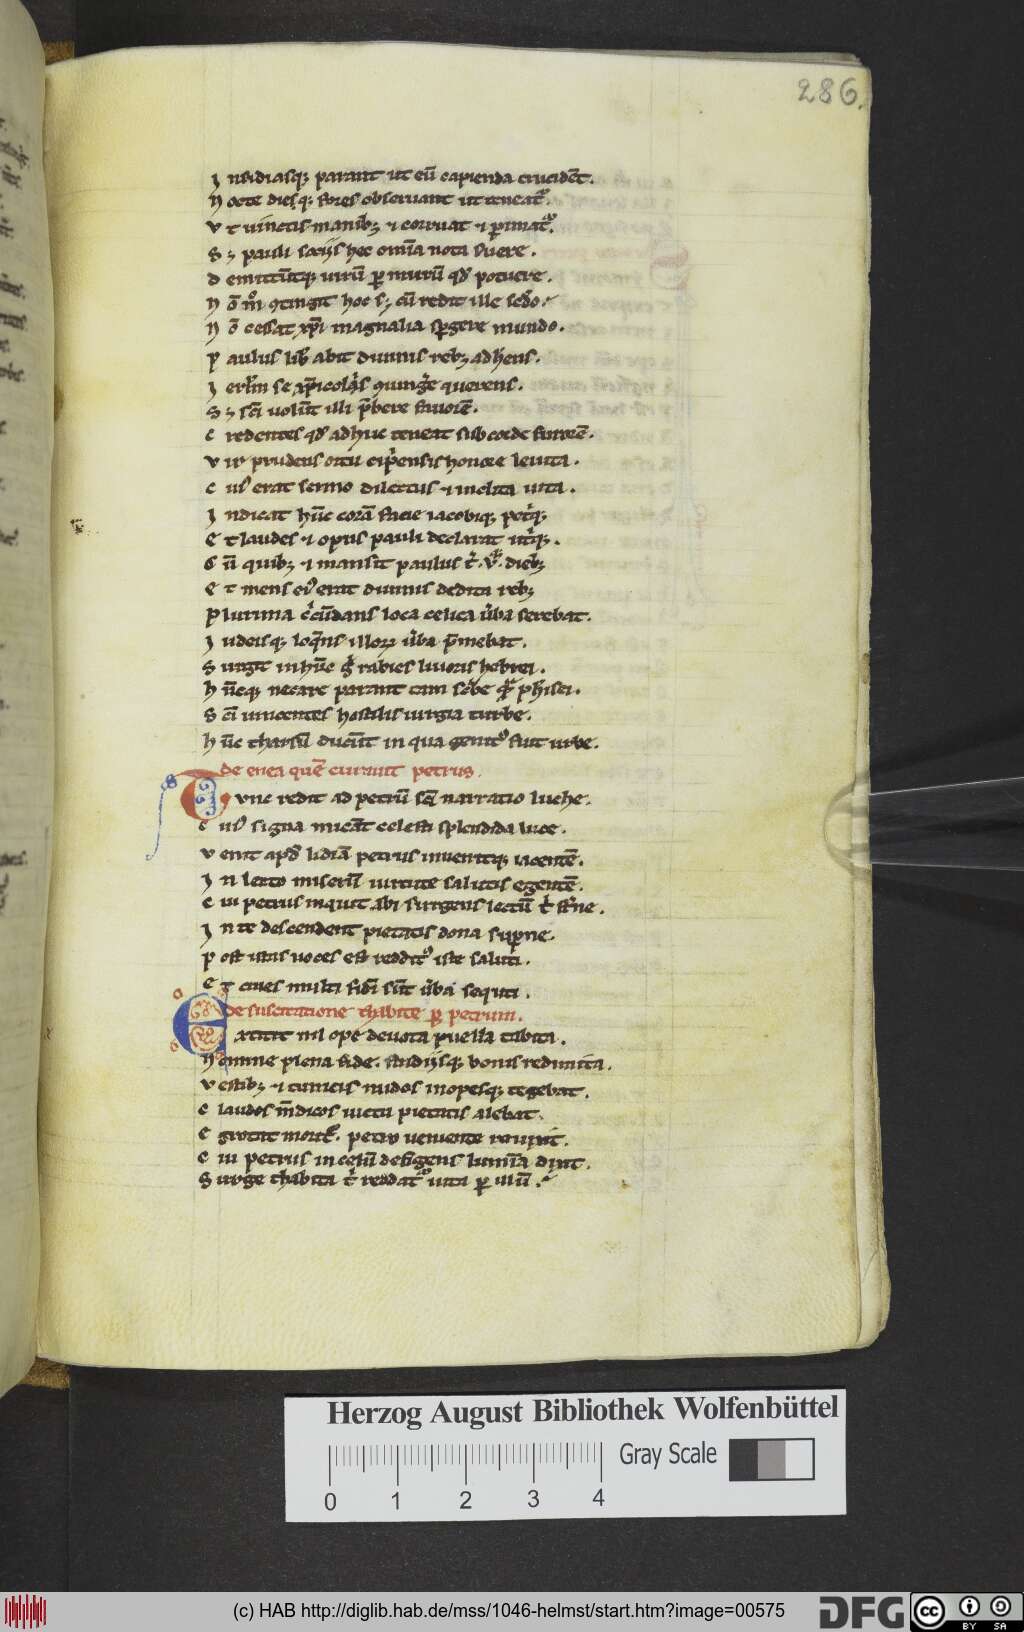 286.
J nsidiasq; parant ut eũ capienda trucidẽt.
N octe diesq; fores obseruant ut teneat᷑.
V t uinctis manib; ⁊ corruat ⁊ p̲imat᷑.
S ; pauli sociis hec om̃ia nota fuere.
D emittũtq; uirũ p̲ murũ qd̕ potuere.
N õ cessat xp̃i magnalia sp̲gere mundo.
P aulus lib̕ abit diuinis reb; adh̕ens.
J erl̃m se xp̃icolis ꝯiung̕e querens.
S ; sc̃i nolũt illi p̃bere fauorẽ.
C redentes qd̕ adhuc teneat sub corde furorẽ.
V ir prudens ortu cip̕ensis honore leuita.
C ui᷒ erat sermo dilectus ⁊ inclita uita.
J ndicat hũc corã facie iacobiq; pet̕q;
E t laudes ⁊ opus pauli declarat ut̕q;.
C ũ quib; ⁊ mansit paulus
E t mens ei᷒ erat diuinis dedita reb;
P lurima c̕cũdans loca celica u̕ba serebat.
J udeisq; loq̃ns illoꝝ u̕ba p̃mebat.
S urgit in hũc g̕ rabies liuoris hebrei.
H ũcq; necare parant tam scbe phisei.
S c̃i uincentes hostilis iurgia turbe.
H ũc tharsũ ducũt in qua genit᷒ fuit urbe.
de enea quẽ curauit petrus.
T unc redit ad petrũ sc̃i narratio luche.
C ui᷒ signa micãt celesti splendida luce.
V enit apd̕ lidiã petrus inuenitq; iacentẽ.
J n lecto miserũ uirtute salutis egentẽ.
C ui petrus inquit tibi surgens lectũ
J n te descendent pietatis dona sup̲ne.
P ost istas uoces est reddit᷒ iste saluti.
E t ciues multi fidei sũt u̕ba sequti.
de suscitatione thabite p̲ petrum.
E xtitit
N omine plena fide. studiisq; bonis redimita.
V estib; ⁊ tunicis nudos inopesq; tegebat.
C laudos mẽdicos uictu pietatis alebat.
E grotat petro ueniente
C ui petrus in celũ defigens lumĩa dixit.
S urge thabita t̕ reddat᷑ uita p̲ illũ.
Herzog August Bibliothek Wolfenbüttel
Gray Scale
0 1 2 3 4
(c) HAB http://diglib.hab.de/mss/1046-helmst/start.htm?image=00575
DFG cc BY SA